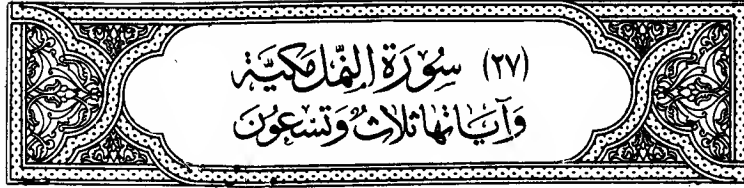 (٢٧) سُورَةُ النَّمْلِ مَكِّيَّة
وَآيَاتُهَا ثَلَاثٌ وَتِسْعُونَ